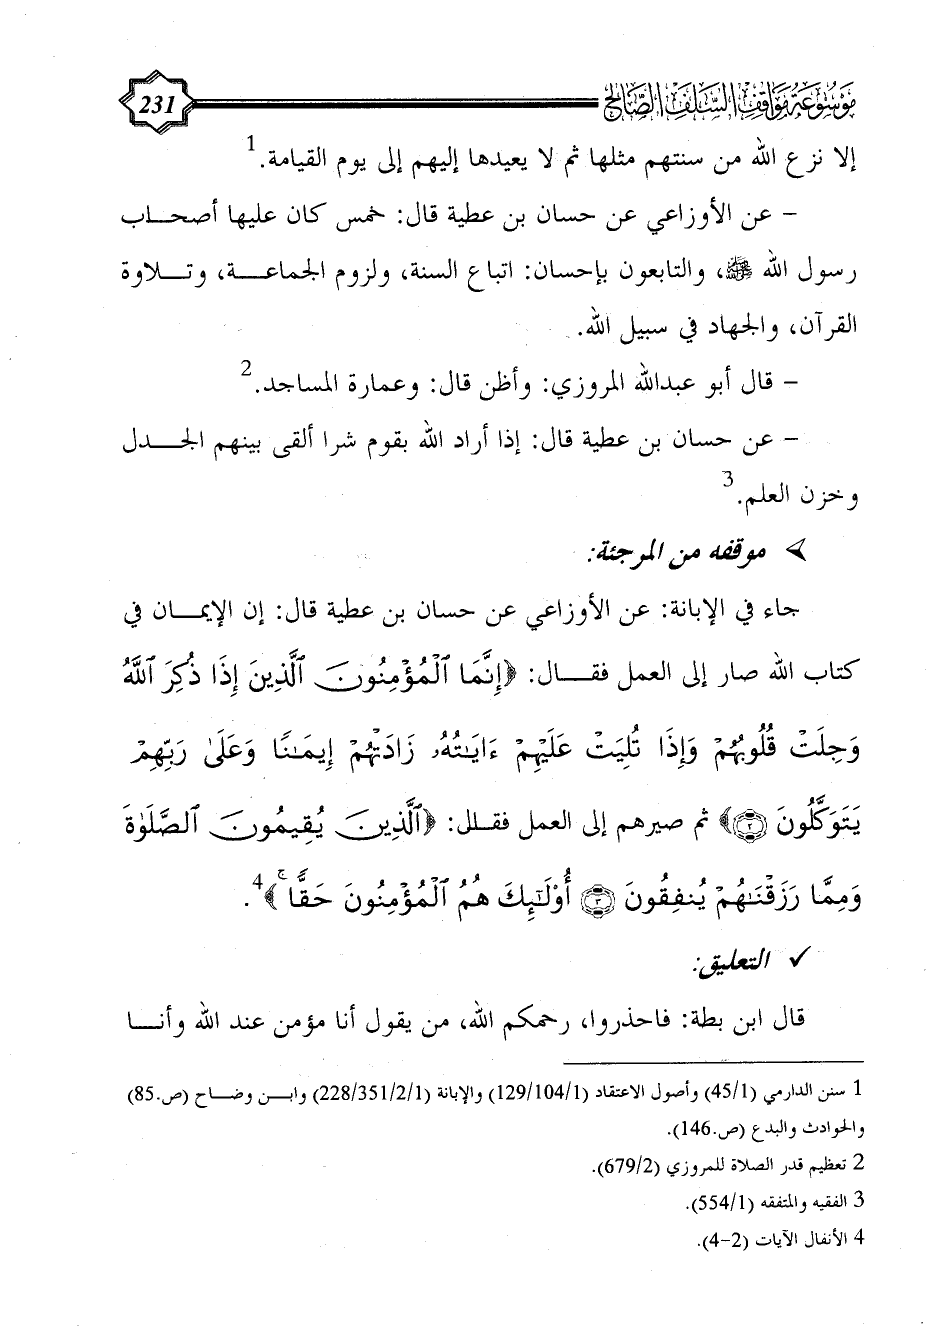 موسوعة مواقف السلف الصالح 231
إلا نزع الله من سنتهم مثلها ثم لا يعيدها إليهم إلى يوم القيامة.1
- عن الأوزاعي عن حسان بن عطية قال: خمس كان عليها أصحاب
رسول الله ﷺ، والتابعون بإحسان: اتباع السنة، ولزوم الجماعة، وتلاوة
القرآن، والجهاد في سبيل الله.
- قال أبو عبدالله المروزي: وأظن قال: وعمارة المساجد.2
- عن حسان بن عطية قال: إذا أراد الله بقوم شرا ألقى بينهم الجدل
وخزن العلم.3
موقفه من المرجئة:
جاء في الإبانة: عن الأوزاعي عن حسان بن عطية قال: إن الإيمان في
كتاب الله صار إلى العمل فقال: ﴿إِنَّمَا ٱلْمُؤْمِنُونَ ٱلَّذِينَ إِذَا ذُكِرَ ٱللَّهُ
وَجِلَتْ قُلُوبُهُمْ وَإِذَا تُلِيَتْ عَلَيْهِمْ ءَايَـٰتُهُۥ زَادَتْهُمْ إِيمَـٰنًا وَعَلَىٰ رَبِّهِمْ
يَتَوَكَّلُونَ ۝٢﴾ ثم صيرهم إلى العمل فقلل: ﴿ٱلَّذِينَ يُقِيمُونَ ٱلصَّلَوٰةَ
وَمِمَّا رَزَقْنَـٰهُمْ يُنفِقُونَ ۝٣ أُوْلَـٰٓئِكَ هُمُ ٱلْمُؤْمِنُونَ حَقًّا ۚ﴾4.
✓ التعليق:
قال ابن بطة: فاحذروا، رحمكم الله، من يقول أنا مؤمن عند الله وأنا
1 سنن الدارمي (45/1) وأصول الاعتقاد (129/104/1) والإبانة (228/351/2/1) وابن وضاح (ص.85)
والحوادث والبدع (ص.146).
2 تعظيم قدر الصلاة للمروزي (679/2).
3 الفقيه والمتفقه (554/1).
4 الأنفال الآيات (2-4).